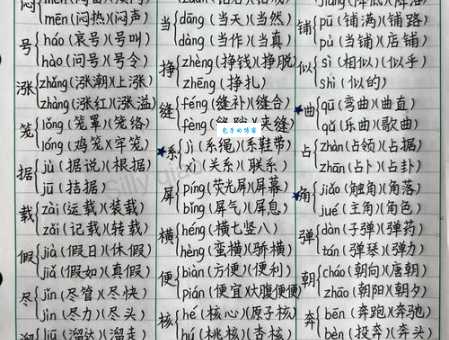 mēn (闷热)(闷声)
号 háo (哀号)(号叫)
hào (问号)(号令)
涨 zhǎng (涨潮)(上涨)
zhàng (涨红)(涨溢)
笼 lǒng (笼罩)(笼络)
lóng (鸡笼)(牢笼)
据 jù (据说)(根据)
jū (拮据)
载 zài (运载)(装载)
zǎi (记载)(转载)
假 jià (假日)(休假)
jiǎ (假如)(真假)
尽 jǐn (尽管)(尽快)
jìn (尽力)(尽头)
liū (溜达)(溜走)
当 dāng (当天)(当然)
dàng (当作)(当真)
挣 zhèng (挣钱)(挣脱)
zhēng (挣扎)
缝 féng (缝补)(缝合)
fèng
系 jì (系绳)(系鞋带)
xì (关系)(联系)
屏 píng (荧光屏)(屏幕)
bǐng (屏气)(屏息)
横 héng (横七竖八)
hèng (蛮横)(骄横)
便 biàn (方便)(便利)
pián (便宜)(大腹便便)
核 hé (核心)(原子核)
hú (桃核)(杏核)
铺 pū (铺满)(铺路)
pù (当铺)(店铺)
似 sì (相似)(似乎)
shì (似的)
曲 qū (弯曲)(曲直)
qǔ (乐曲)(歌曲)
占 zhàn (占领)(占据)
zhān (占卜)(占卦)
角 jiǎo (触角)(角落)
jué (主角)(角色)
弹 dàn (子弹)(弹药)
tán (弹琴)(弹力)
朝 cháo (朝向)(唐朝)
zhāo (朝阳)(朝夕)
奔 bēn (奔跑)(奔驰)
bèn (投奔)(奔头)